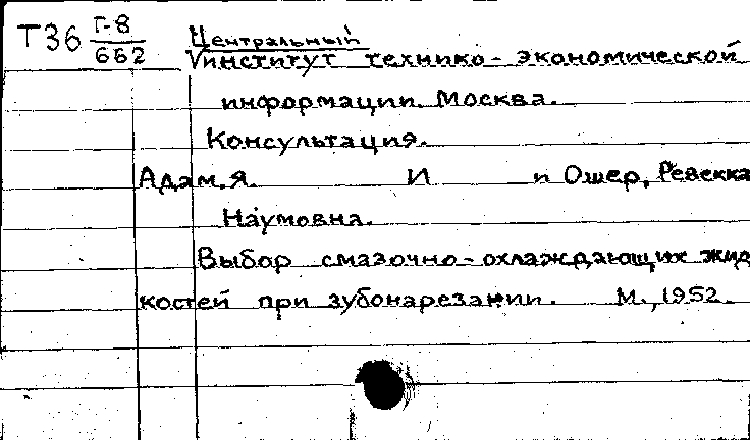 Т36 Г-8
662
Центральный
институт технико-экономической
информации. Москва.
Консультация.
Адам, Я. И и Ошер, Ревекка
Наумовна.
Выбор смазочно-охлаждающих жид
костей при зубонарезании. М., 1952.